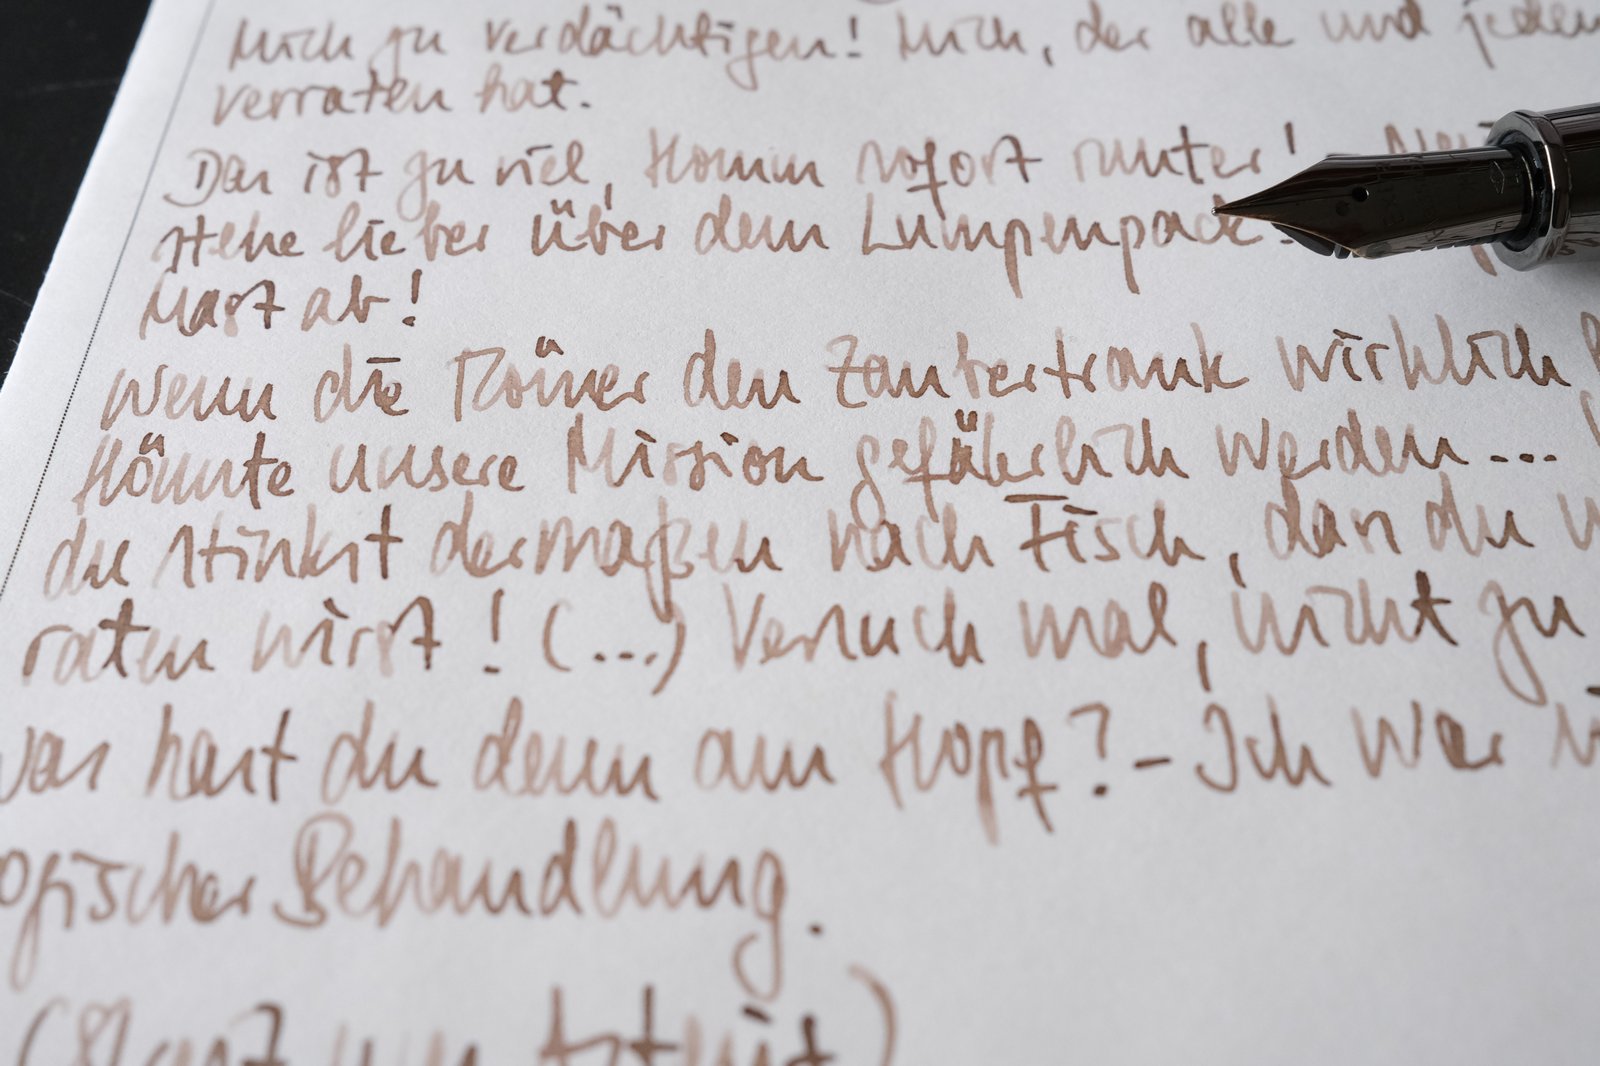 Mich zu verdächtigen! Mich, der alle und jeden
verraten hat.
Das ist zu viel, komm sofort runter! -
stehe lieber über dem Lumpenpack.
Mast ab!
Wenn die Römer den Zaubertrank wirklich
könnte unsere Mission gefährlich werden...
du stinkst dermaßen nach Fisch, das du
raten wirst! (...) Versuch mal, nicht zu
was hast du denn am Kopf? - Ich war
ogischer Behandlung.